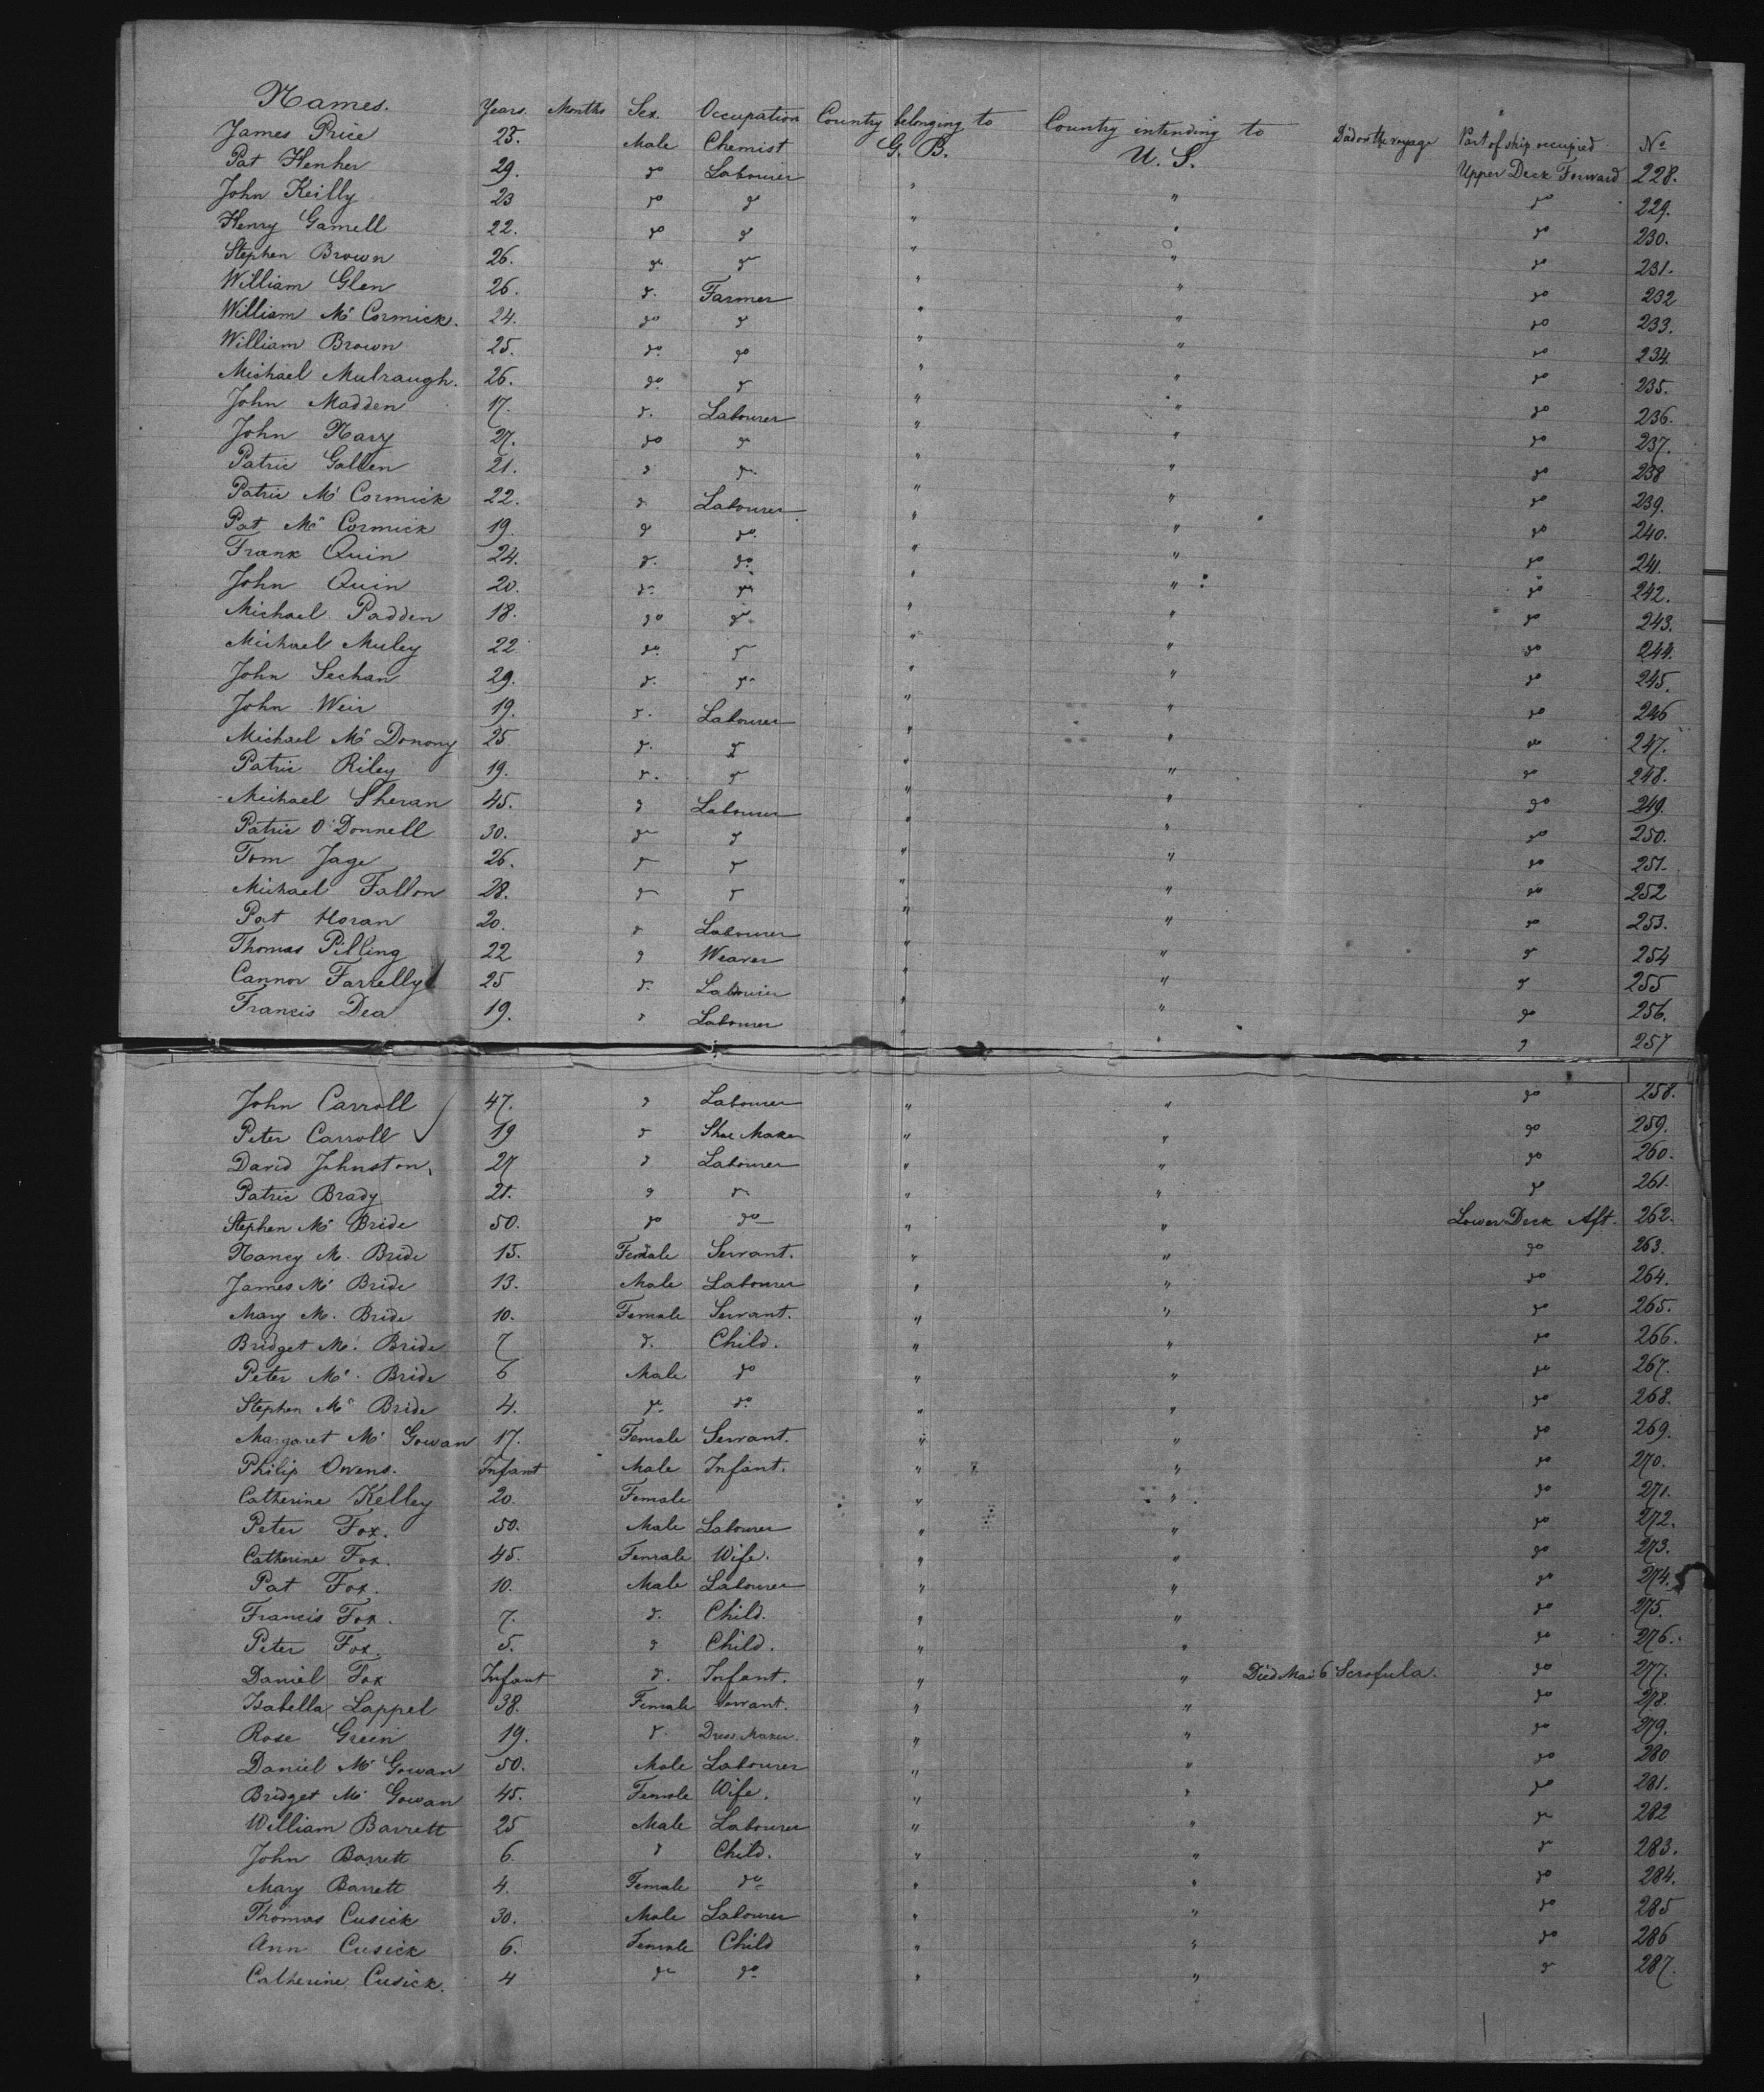 Names. Years. Months Sex. Occupation Country belonging to Country intending to Died on the voyage Part of ship occupied No
James Price 23. Male Chemist G. B. U. S. Upper Deck Forward 228.
Pat Henher 29. do Labourer " " do 229.
John Reilly 23 do do " " do 230.
Henry Gamell 22. do do " " do 231.
Stephen Brown 26. do do " " do 232
William Glen 26. do Farmer " " do 233.
William Mc Cormick. 24. do do " " do 234.
William Brown 25. do do " " do 235.
Michael Mulraugh. 26. do do " " do 236.
John Madden 17. do Labourer " " do 237.
John Nary 27. do do " " do 238
Patric Gallen 21. do do " " do 239.
Patric Mc Cormick 22. do Labourer " " do 240.
Pat Mc Cormick 19. do do " " do 241.
Frank Quin 24. do do " " do 242.
John Quin 20. do do " " do 243.
Michael Padden 18. do do " " do 244.
Michael Muley 22 do do " " do 245.
John Sechan 29. do do " " do 246
John Weir 19. do Labourer " " do 247.
Michael Mc Donony 25 do do " " do 248.
Patric Riley 19. do do " " do 249.
Michael Sheran 45. do Labourer " " do 250.
Patric O'Donnell 30. do do " " do 251.
Tom Jage 26. do do " " do 252
Michael Fallon 28. do do " " do 253.
Pat Horan 20. do Labourer " " do 254
Thomas Pilling 22 do Weaver " " do 255
Cannor Farrelly 25 do Labourer " " do 256.
Francis Dea 19. do Labourer " " do 257
John Carroll 47. do Labourer " " do 258.
Peter Carroll 19 do Shoe Maker " " do 259.
David Johnston, 27 do Labourer " " do 260.
Patric Brady 21. do do " " do 261.
Stephen Mc Bride 50. do do " " Lower Deck Aft. 262.
Nancy Mc Bride 15. Female Servant. " " do 263.
James Mc Bride 13. Male Labourer " " do 264.
Mary Mc. Bride 10. Female Servant. " " do 265.
Bridget Mc. Bride 7 do Child. " " do 266.
Peter Mc. Bride 6 Male do " " do 267.
Stephen Mc Bride 4. do do " " do 268.
Margaret Mc Gowan 17. Female Servant. " " do 269.
Philip Owens. Infant Male Infant. " " do 270.
Catherine Kelley 20. Female " " do 271.
Peter Fox. 50. Male Labourer " " do 272.
Catherine Fox. 45. Female Wife. " " do 273.
Pat Fox. 10. Male Labourer " " do 274.
Francis Fox. 7. do Child. " " do 275.
Peter Fox. 5. do Child. " " do 276.
Daniel Fox Infant do Infant. " " Died Mar 6 Scrofula. do 277.
Isabella Lappel 38. Female Servant. " " do 278.
Rose Green 19. do Dress Maker. " " do 279.
Daniel Mc Gowan 50. Male Labourer " " do 280
Bridget Mc Gowan 45. Female Wife. " " do 281.
William Barrett 25 Male Labourer " " do 282
John Barrett 6. do Child. " " do 283.
Mary Barrett 4. Female do " " do 284.
Thomas Cusick 30. Male Labourer " " do 285
Ann Cusick 6. Female Child " " do 286
Catherine Cusick. 4 do do " " do 287.